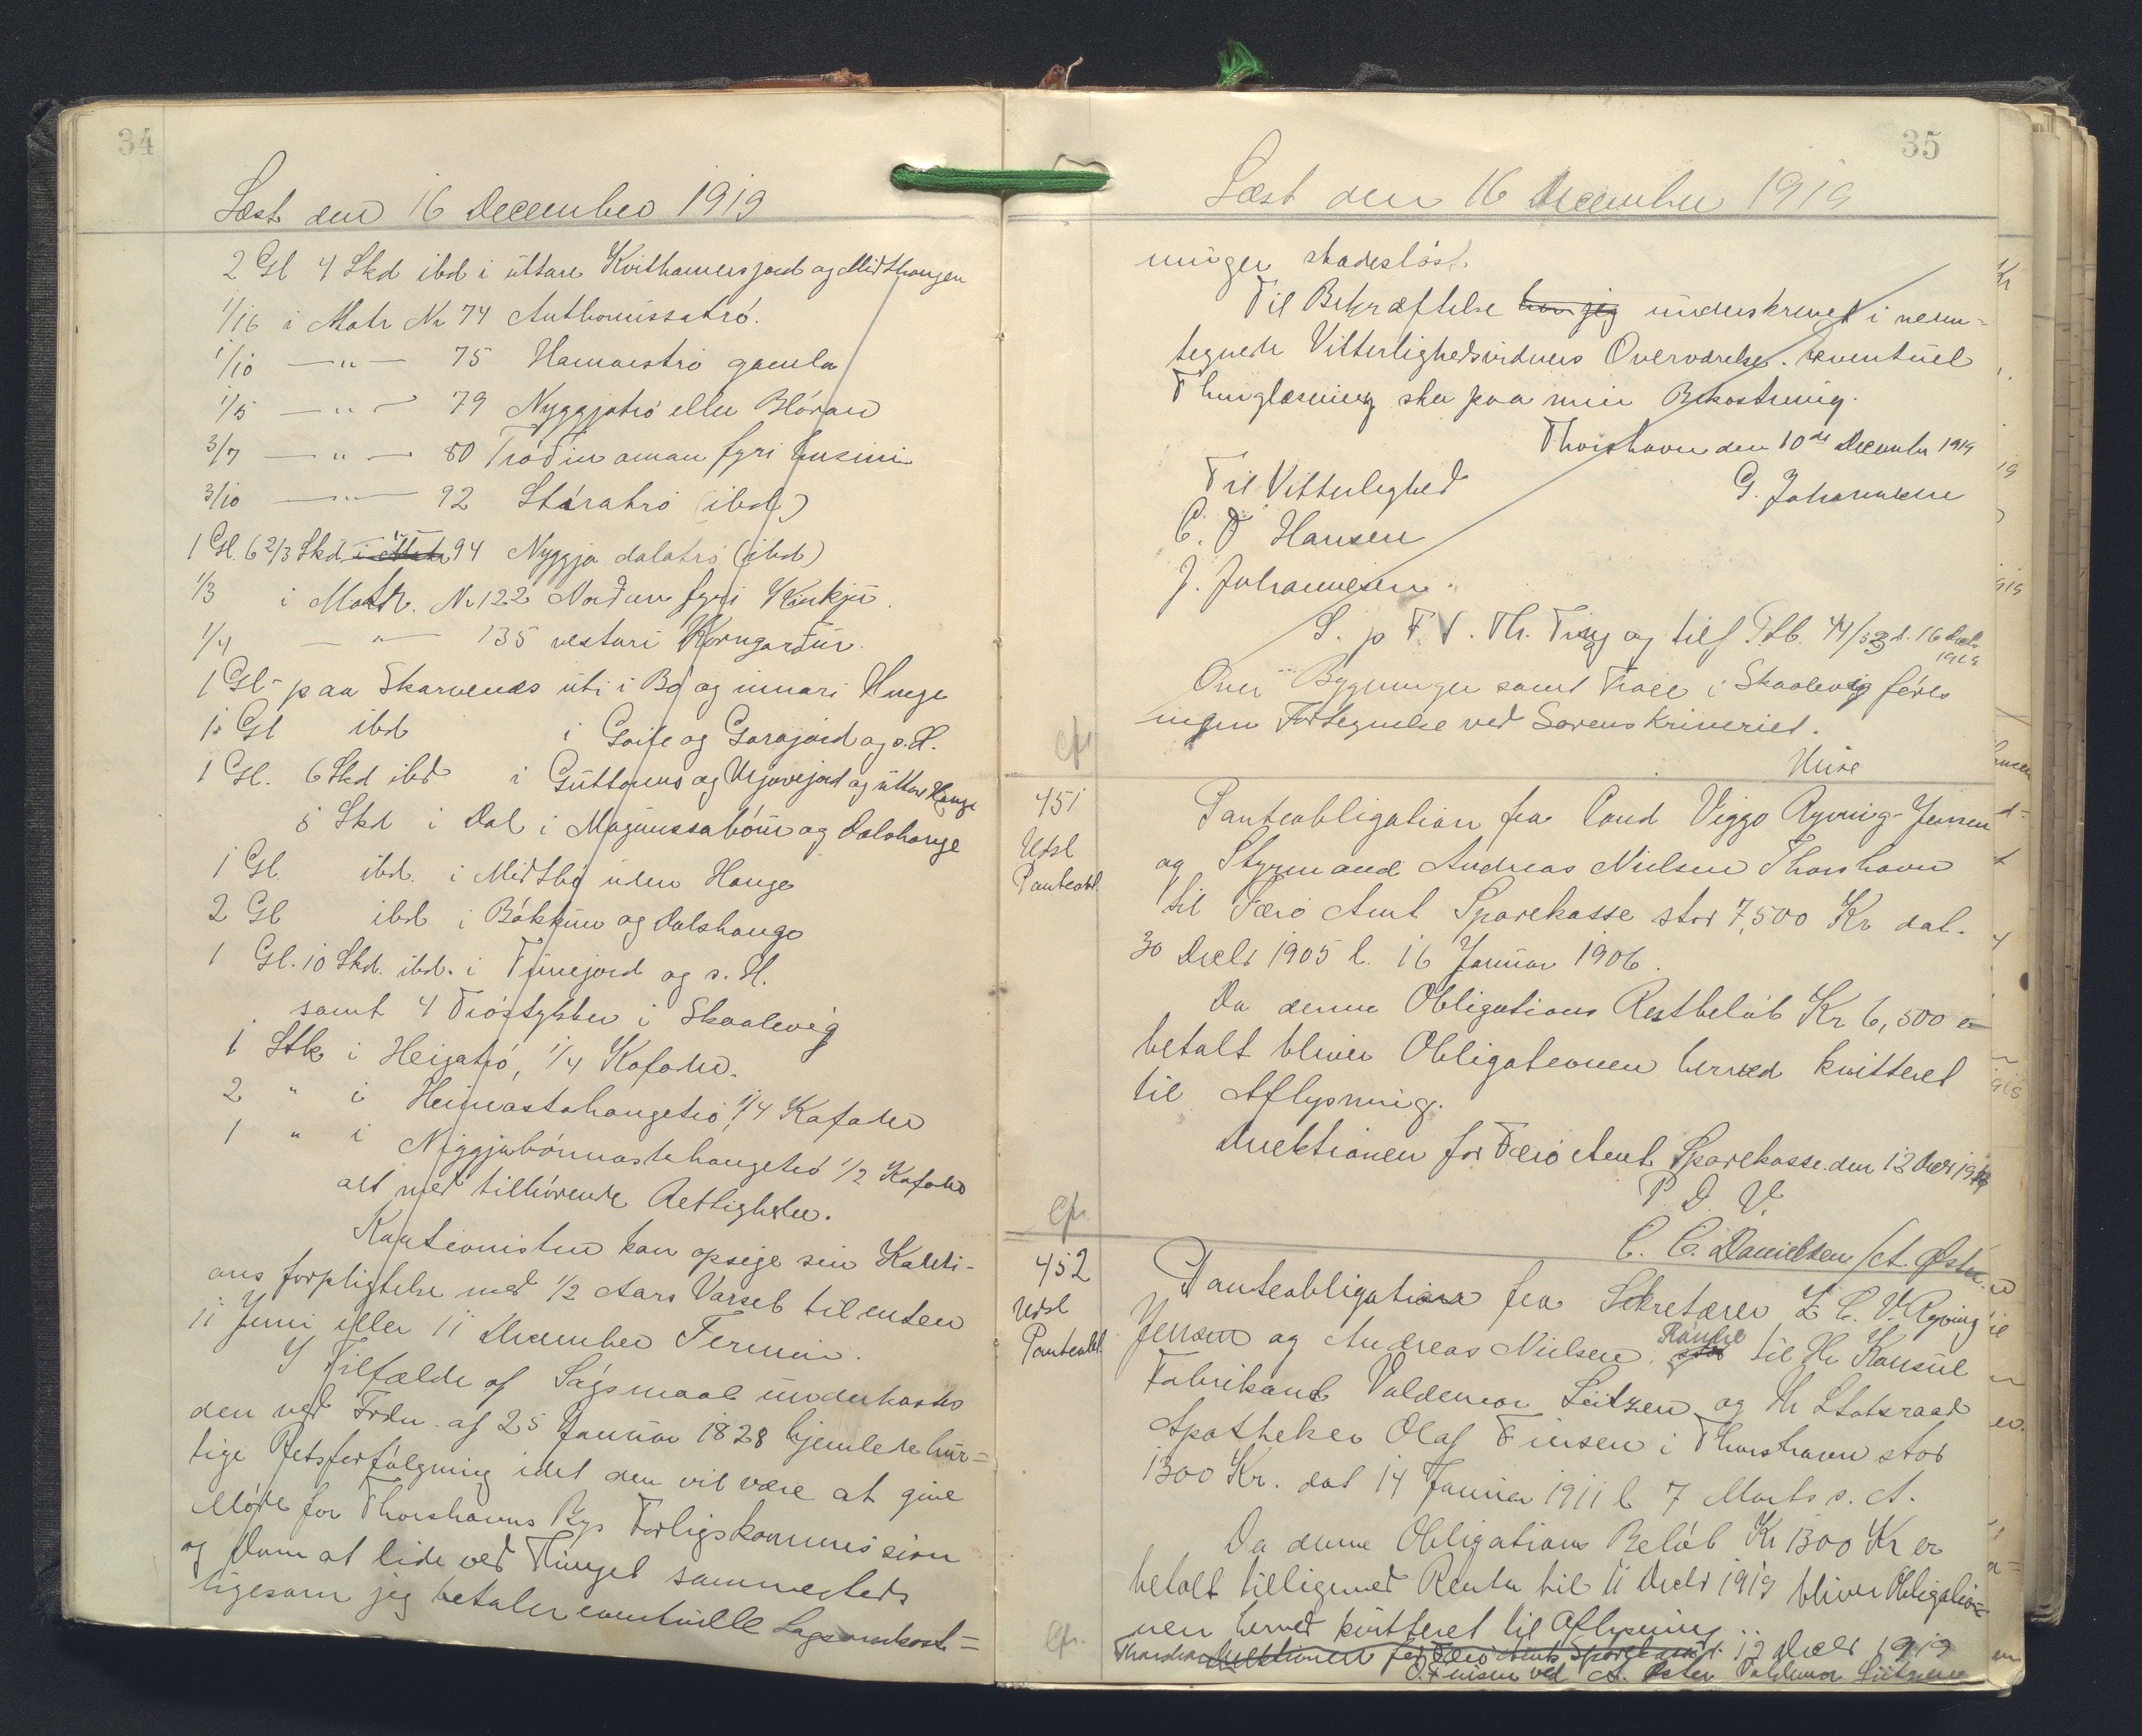 34
Læst den 16 December 1919
2 Gl 4 Skd ibd i úttare Kvithamersjord og Midthangen
1/16 i Matr Nr 74 Anthoniussatró.
1/10 — " — 75 Hamarstró gamla
1/5 — " — 79 Nyggjatró eller Blóran
3/7 — " — 80 Tróðin oman fyri húsini
3/10 — " — 92 Stóratró (ibd)
1 Gl. 6 2/3 Skd i Matr 94 Nyggja dalatró (ibd)
1/3 i Matr. Nr 122 Norðan fyri Kirkju.
1/4 — " — 135 vestari Korngarður.
1 Gl - paa Skarvenes úti i Bø og innari Hauge
1 Gl ibd i Goife og Garajord og s. H.
1 Gl. 6 Skd ibd i Guttorms og Urjavejord og úttare Hauge
5 Skd i Dal i Magnussabónir og Dalshauge
1 Gl. ibd. i Midtbø uden Hauge
2 Gl ibd i Bákkum og Dalshauge
1 Gl. 10 Skd. ibd. i Túnejord og s. H.
samt 4 Tróstykker i Skaalevig
1 Stk i Heigatró, 1/4 Kafodn.
2 " i Heimastahaugetró, 1/4 Kafodn
1 " i Niggjabónnastahaugetró 1/2 Kafodn
alt med tilhörende Rettigheder.
Kautionisten kan opsige sin Kauti-
ons forpligtelse med 1/2 Aars Varsel til enten
11 Juni eller 11 December Termin.
I Tilfælde af Sögsmaal underkastes
den ved Frdn. af 25 Januar 1828 hjemlede hur=
tige Retsforfölgning idet den vil være at give
Möde for Thorshavns Bys Forligskommission
og Dom at lide ved Thinget sammesteds
ligesom jeg betaler eventuelle Sagsomkost=
35
Læst den 16 December 1919
ninger skadeslöst.
Til Bekræftelse har jeg underskrevet i neden=
tegnede Vitterlighedsvidners Overværelse. eventuel
Thinglæsning sker paa min Bekostning.
Thorshavn den 10de December 1919
G. Johannesen
Til Vitterlighed
C. D Hansen
J. Johannesen.
L. p F. V. Th. Ting og tilf Ptb. 44/33 d. 16 Decbr 1919
Over Bygninger samt Tróer i Skaalevig föres
ingen Fortegnelse ved Sorenskriveriet.
cfr
451
Udsl
Panteobl
Panteobligation fra Cand Viggo Ryving-Jensen
og Styrmand Andreas Nielsen Thorshavn
til Færö Amt Sparekasse stor 7,500 Kr dat.
30 Decbr 1905 l. 16 Januar 1906.
Da denne Obligations Restbelöb Kr 6,500 er
betalt bliver Obligationen herved kvitteret
til Aflysning.
Direktionen for Færö Amt Sparekasse. den 12 Decbr 1919
P. D. V.
C. C. Danielsen / A. Öster.
cfr.
452
Udsl
Panteobl
Panteobligation fra Sekretærer L. C. V. Ryving
Jensen og Andreas Nielsen stor til Hr Konsul
Fabrikant Valdemar Lützen og Hr Etatsraad
Apotheker Olaf Finsen i Thorshavn stor
1300 Kr. dat 14 Januar 1911 l 7 Marts s. A.
Da denne Obligations Belöb Kr 1300 Kr er
betalt tilligemed Renter til 11 Decbr 1919 bliver Obligatio=
nen herved kvitteret til Aflysning.
Thorshavn Direktionen for Færö Amts Sparekasse. 12 Decbr 1919
O. Finsen ved A. Öster Valdemar Lützen
cfr.